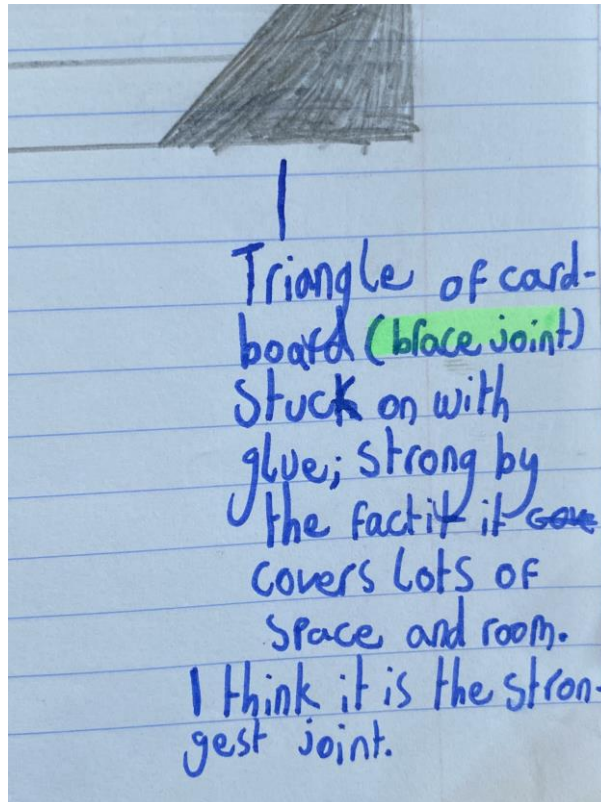 Triangle of card-
board (brace joint)
Stuck on with
glue; strong by
the fact it it
covers lots of
space and room.
I think it is the stron-
gest joint.